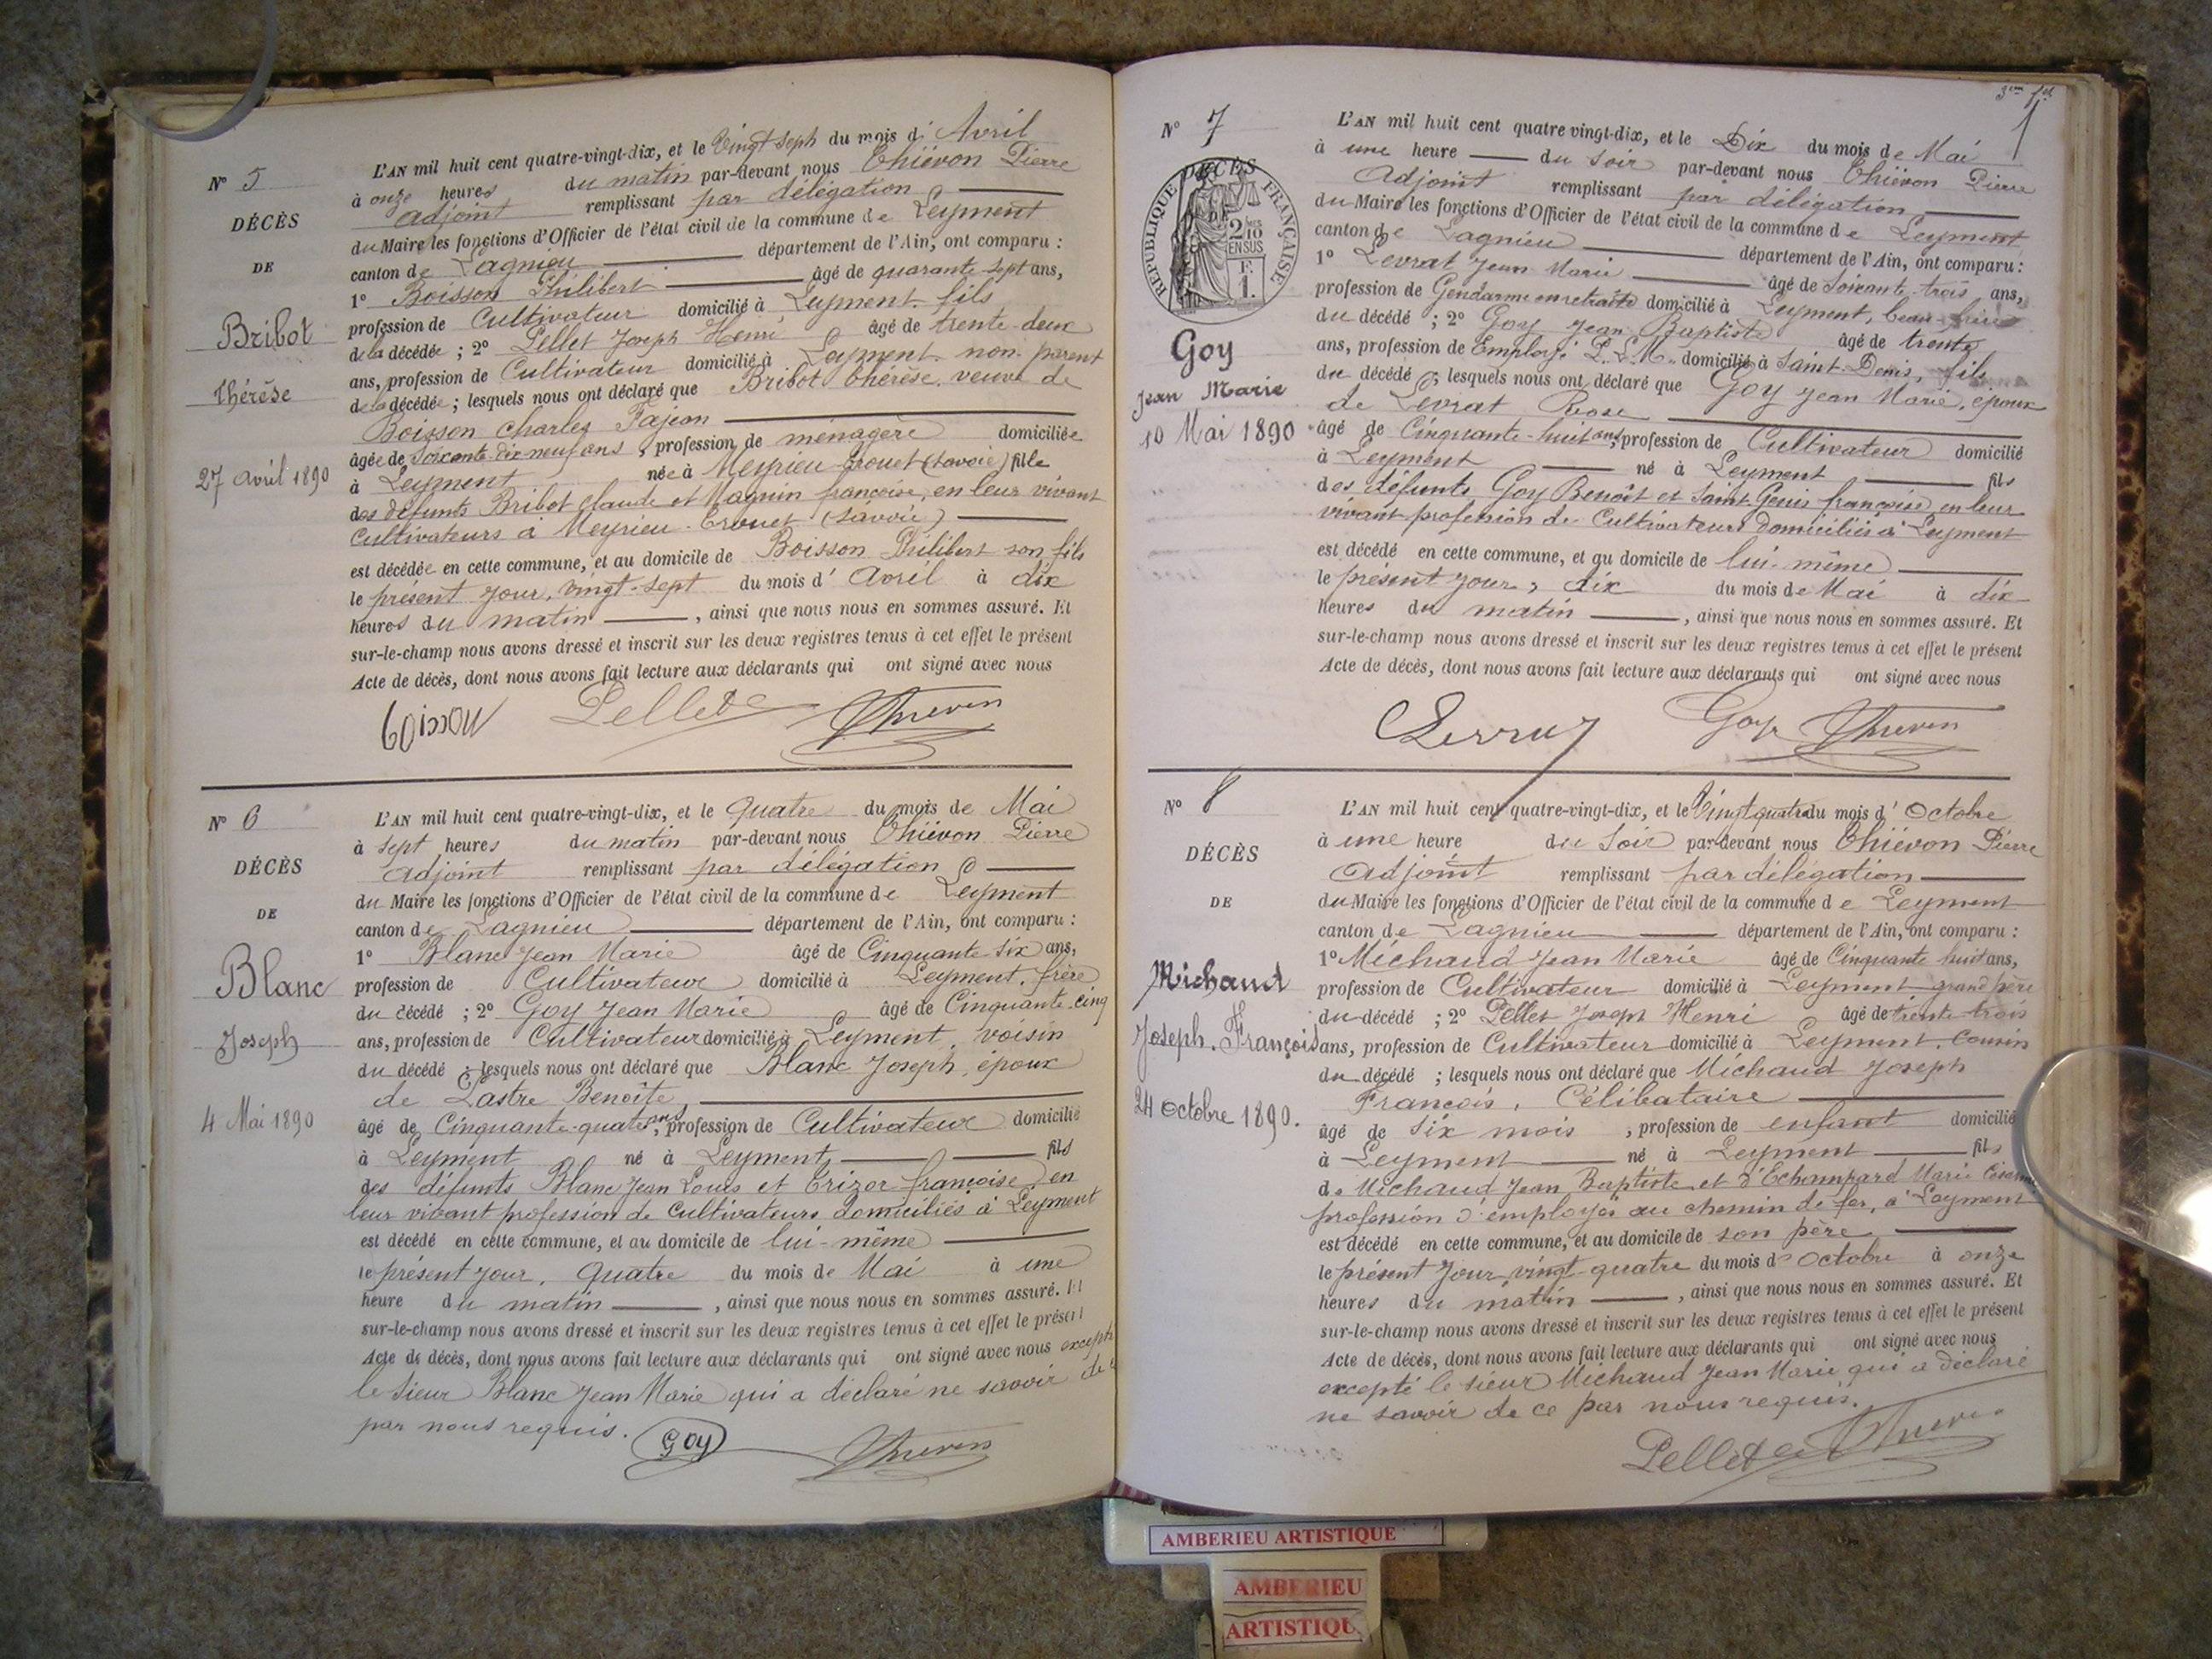 Nº 5
DÉCÈS
DE
Bribot
Thérèse
27 avril 1890
L'AN mil huit cent quatre-vingt-dix, et le Vingt Sept du mois d' Avril
à onze heures du matin par-devant nous Thiévon Pierre
adjoint remplissant par délégation
du Maire les fonctions d'Officier de l'état civil de la commune de Leyment
canton de Lagnieu département de l'Ain, ont comparu :
1º Boisson Philibert âgé de quarante sept ans,
profession de Cultivateur domicilié à Leyment fils
de la décédée ; 2º Pellet Joseph Henri âgé de trente-deux
ans, profession de Cultivateur domicilié à Leyment non parent
de la décédée ; lesquels nous ont déclaré que Bribot Thérèse, veuve de
Boisson Charles Fajeon
âgée de Soixante-dix-neuf ans, profession de ménagère domiciliée
à Leyment née à Meyrieu-Trouet (Savoie) fille
des défunts Bribot Claude et Magnin françoise, en leur vivant
Cultivateurs à Meyrieu-Trouet (Savoie)
est décédée en cette commune, et au domicile de Boisson Philibert son fils
le présent jour, vingt-sept du mois d' Avril à dix
heures du matin, ainsi que nous nous en sommes assuré. Et
sur-le-champ nous avons dressé et inscrit sur les deux registres tenus à cet effet le présent
Acte de décès, dont nous avons fait lecture aux déclarants qui ont signé avec nous
Boisson Pellet Thievon
Nº 6
DÉCÈS
DE
Blanc
Joseph
4 Mai 1890
L'AN mil huit cent quatre-vingt-dix, et le quatre du mois de Mai
à sept heures du matin par-devant nous Thiévon Pierre
adjoint remplissant par délégation
du Maire les fonctions d'Officier de l'état civil de la commune de Leyment
canton de Lagnieu département de l'Ain, ont comparu :
1º Blanc Jean Marie âgé de Cinquante-six ans,
profession de Cultivateur domicilié à Leyment, frère
du décédé ; 2º Goy Jean Marie âgé de Cinquante-cinq
ans, profession de Cultivateur domicilié à Leyment, voisin
du décédé ; lesquels nous ont déclaré que Blanc Joseph, époux
de Lastre Benoîte,
âgé de Cinquante-quatre ans, profession de Cultivateur domicilié
à Leyment né à Leyment fils
des défunts Blanc Jean Louis et Trizor françoise, en
leur vivant profession de Cultivateurs domiciliés à Leyment
est décédé en cette commune, et au domicile de lui-même
le présent jour, quatre du mois de Mai à une
heure du matin, ainsi que nous nous en sommes assuré. Et
sur-le-champ nous avons dressé et inscrit sur les deux registres tenus à cet effet le présent
Acte de décès, dont nous avons fait lecture aux déclarants qui ont signé avec nous excepté
le sieur Blanc Jean Marie qui a déclaré ne savoir de
par nous requis. Goy Thievon
Nº 7
RÉPUBLIQUE FRANÇAISE
2/10 EN SUS
F. 1.
DÉCÈS
Goy
Jean Marie
10 Mai 1890
L'AN mil huit cent quatre vingt-dix, et le Dix du mois de Mai
à une heure du soir par-devant nous Thiévon Pierre
Adjoint remplissant par délégation,
du Maire les fonctions d'Officier de l'état civil de la commune de Leyment
canton de Lagnieu département de l'Ain, ont comparu :
1º Levrat Jean Marie âgé de Soixante-trois ans,
profession de Gendarme en retraite domicilié à Leyment, beau-frère
du décédé ; 2º Goy Jean Baptiste âgé de trente
ans, profession de Employé P. L. M. domicilié à Saint-Denis, fils
du décédé ; lesquels nous ont déclaré que Goy Jean Marie, époux
de Levrat Rose
âgé de Cinquante-huit ans, profession de Cultivateur domicilié
à Leyment né à Leyment fils
des défunts Goy Benoît et Saint-Genis françoise, en leur
vivant profession de Cultivateurs domiciliés à Leyment
est décédé en cette commune, et au domicile de lui-même
le présent jour, dix du mois de Mai à dix
heures du matin, ainsi que nous nous en sommes assuré. Et
sur-le-champ nous avons dressé et inscrit sur les deux registres tenus à cet effet le présent
Acte de décès, dont nous avons fait lecture aux déclarants qui ont signé avec nous
Goy Thievon
Nº 8
DÉCÈS
DE
Michaud
Joseph. François
24 octobre 1890.
L'AN mil huit cent quatre-vingt-dix, et le Vingt quatre du mois d' Octobre
à une heure du Soir par-devant nous Thiévon Pierre
Adjoint remplissant par délégation
du Maire les fonctions d'Officier de l'état civil de la commune de Leyment
canton de Lagnieu département de l'Ain, ont comparu :
1º Michaud Jean Marie âgé de Cinquante huit ans,
profession de Cultivateur domicilié à Leyment grand père
du décédé ; 2º Pellet Joseph Henri âgé de trente-trois
ans, profession de Cultivateur domicilié à Leyment, Cousin
du décédé ; lesquels nous ont déclaré que Michaud Joseph
François, Célibataire
âgé de Six mois, profession de enfant domicilié
à Leyment né à Leyment fils
de Michaud Jean Baptiste et d'Echampard Marie
profession d'employés au chemin de fer, à Leyment
est décédé en cette commune, et au domicile de son père
le présent jour vingt-quatre du mois d' Octobre à onze
heures du matin, ainsi que nous nous en sommes assuré. Et
sur-le-champ nous avons dressé et inscrit sur les deux registres tenus à cet effet le présent
Acte de décès, dont nous avons fait lecture aux déclarants qui ont signé avec nous
excepté le sieur Michaud Jean Marie qui a déclaré
ne savoir de ce par nous requis.
Pellet Thievon
AMBERIEU ARTISTIQUE
AMBERIEU
ARTISTIQU